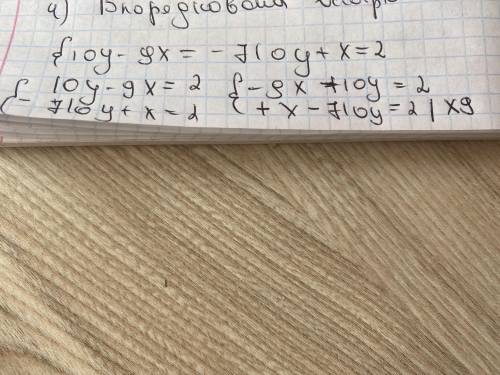 4) Впорядкована
{10y - 9x = - 710y + x = 2
{ 10y - 9x = 2 { - 9x + 10y = 2
- 710y + x = 2 + x - 710y = 2 | x9